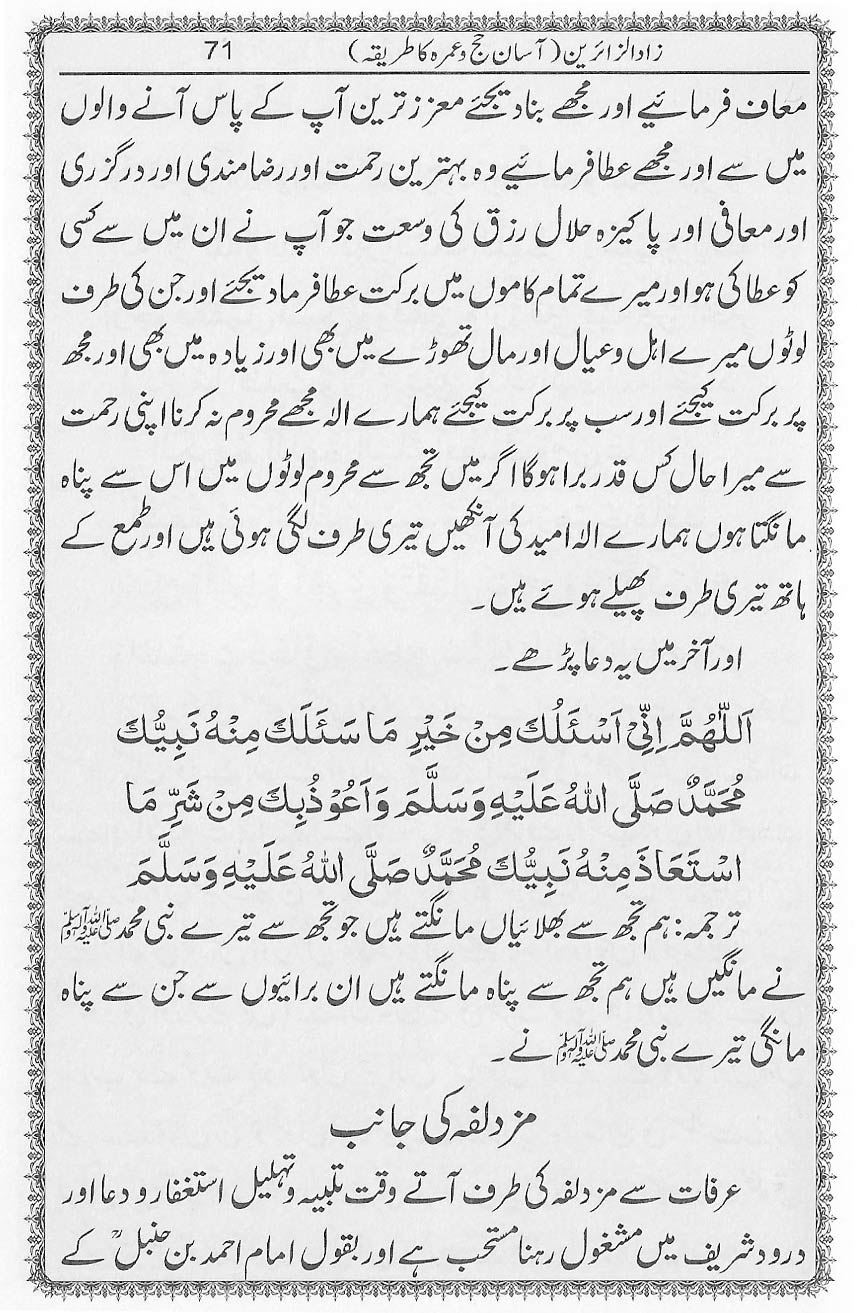 زاد الزائرین (آسان حج و عمرہ کا طریقہ) 71
معاف فرمائیے اور مجھے بنا دیجئے معزز ترین آپ کے پاس آنے والوں
میں سے اور مجھے عطا فرمائیے وہ بہترین رحمت اور رضا مندی اور درگزری
اور معافی اور پاکیزہ حلال رزق کی وسعت جو آپ نے ان میں سے کسی
کو عطا کی ہو اور میرے تمام کاموں میں برکت عطا فرما دیجئے اور جن کی طرف
لوٹوں میرے اہل و عیال اور مال تھوڑے میں بھی اور زیادہ میں بھی اور مجھ
پر برکت کیجئے اور سب پر برکت کیجئے ہمارے الہ مجھے محروم نہ کرنا اپنی رحمت
سے میرا حال کس قدر برا ہوگا اگر میں تجھ سے محروم لوٹوں میں اس سے پناہ
مانگتا ہوں ہمارے الہ امید کی آنکھیں تیری طرف لگی ہوئی ہیں اور طمع کے
ہاتھ تیری طرف پھیلے ہوئے ہیں۔
اور آخر میں یہ دعا پڑھے۔
اَللّٰهُمَّ اِنِّیْ اَسْئَلُكَ مِنْ خَیْرِ مَا سَئَلَكَ مِنْهُ نَبِیُّكَ
مُحَمَّدٌ صَلَّی اللهُ عَلَیْهِ وَسَلَّمَ وَاَعُوْذُبِكَ مِنْ شَرِّ مَا
اسْتَعَاذَ مِنْهُ نَبِیُّكَ مُحَمَّدٌ صَلَّی اللهُ عَلَیْهِ وَسَلَّمَ
ترجمہ: ہم تجھ سے بھلائیاں مانگتے ہیں جو تجھ سے تیرے نبی محمد ﷺ
نے مانگیں ہیں ہم تجھ سے پناہ مانگتے ہیں ان برائیوں سے جن سے پناہ
مانگی تیرے نبی محمد ﷺ نے۔
مزدلفہ کی جانب
عرفات سے مزدلفہ کی طرف آتے وقت تلبیہ و تہلیل استغفار و دعا اور
درود شریف میں مشغول رہنا مستحب ہے اور بقول امام احمد بن حنبلؒ کے